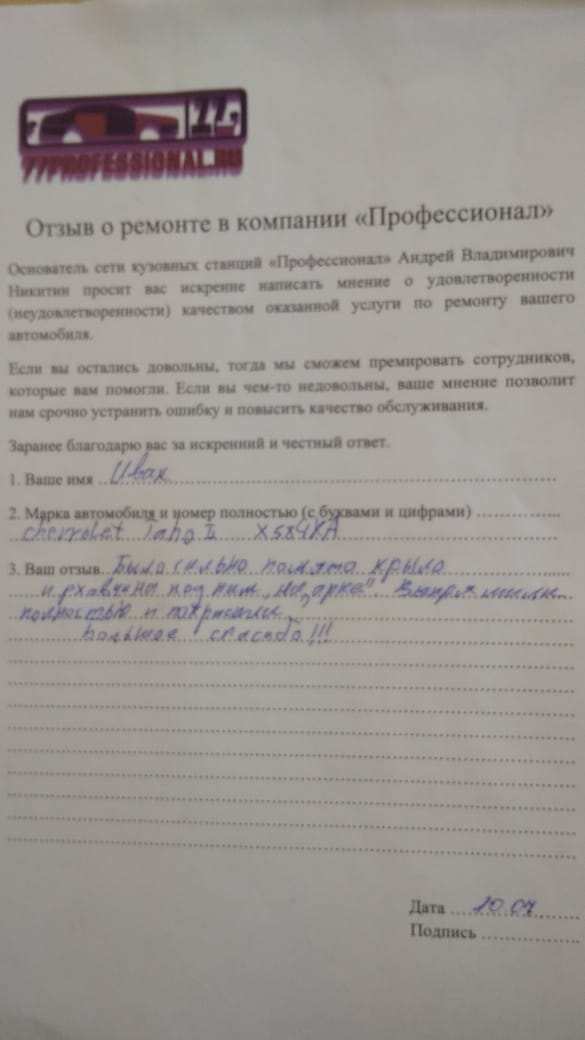 77
77PROFESSIONAL.RU
Отзыв о ремонте в компании «Профессионал»
Основатель сети кузовных станций «Профессионал» Андрей Владимирович
Никитин просит вас искренне написать мнение о удовлетворенности
(неудовлетворенности) качеством оказанной услуги по ремонту вашего
автомобиля.
Если вы остались довольны, тогда мы сможем премировать сотрудников,
которые вам помогли. Если вы чем-то недовольны, ваше мнение позволит
нам срочно устранить ошибку и повысить качество обслуживания.
Заранее благодарю вас за искренний и честный ответ.
1. Ваше имя Иван
2. Марка автомобиля и номер полностью (с буквами и цифрами)
chevrolet Taho II X584XA
3. Ваш отзыв Было сильно помято крыло
и ржавчина под ним на „арке". Выпрямили
полностью и покрасили.
Большое спасибо!!!
Дата 10.07
Подпись